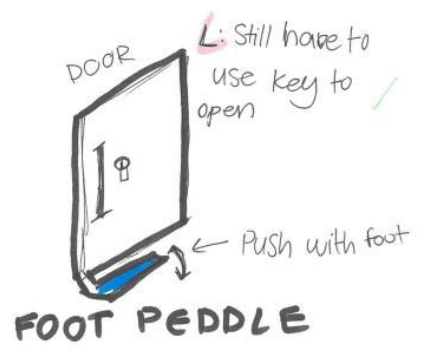 DOOR
L: Still have to
use key to
open
Push with foot
FOOT PEDDLE